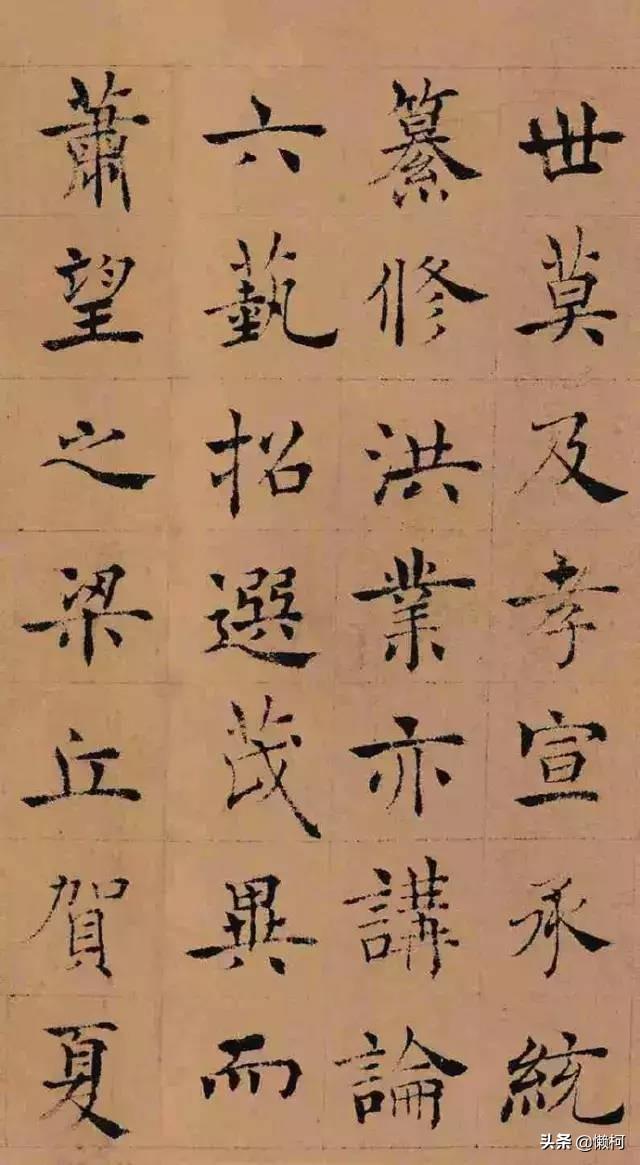 世莫及孝宣承統
纂修洪業亦講論
六藝招選茂異而
蕭望之梁丘賀夏
头条 @懒柯